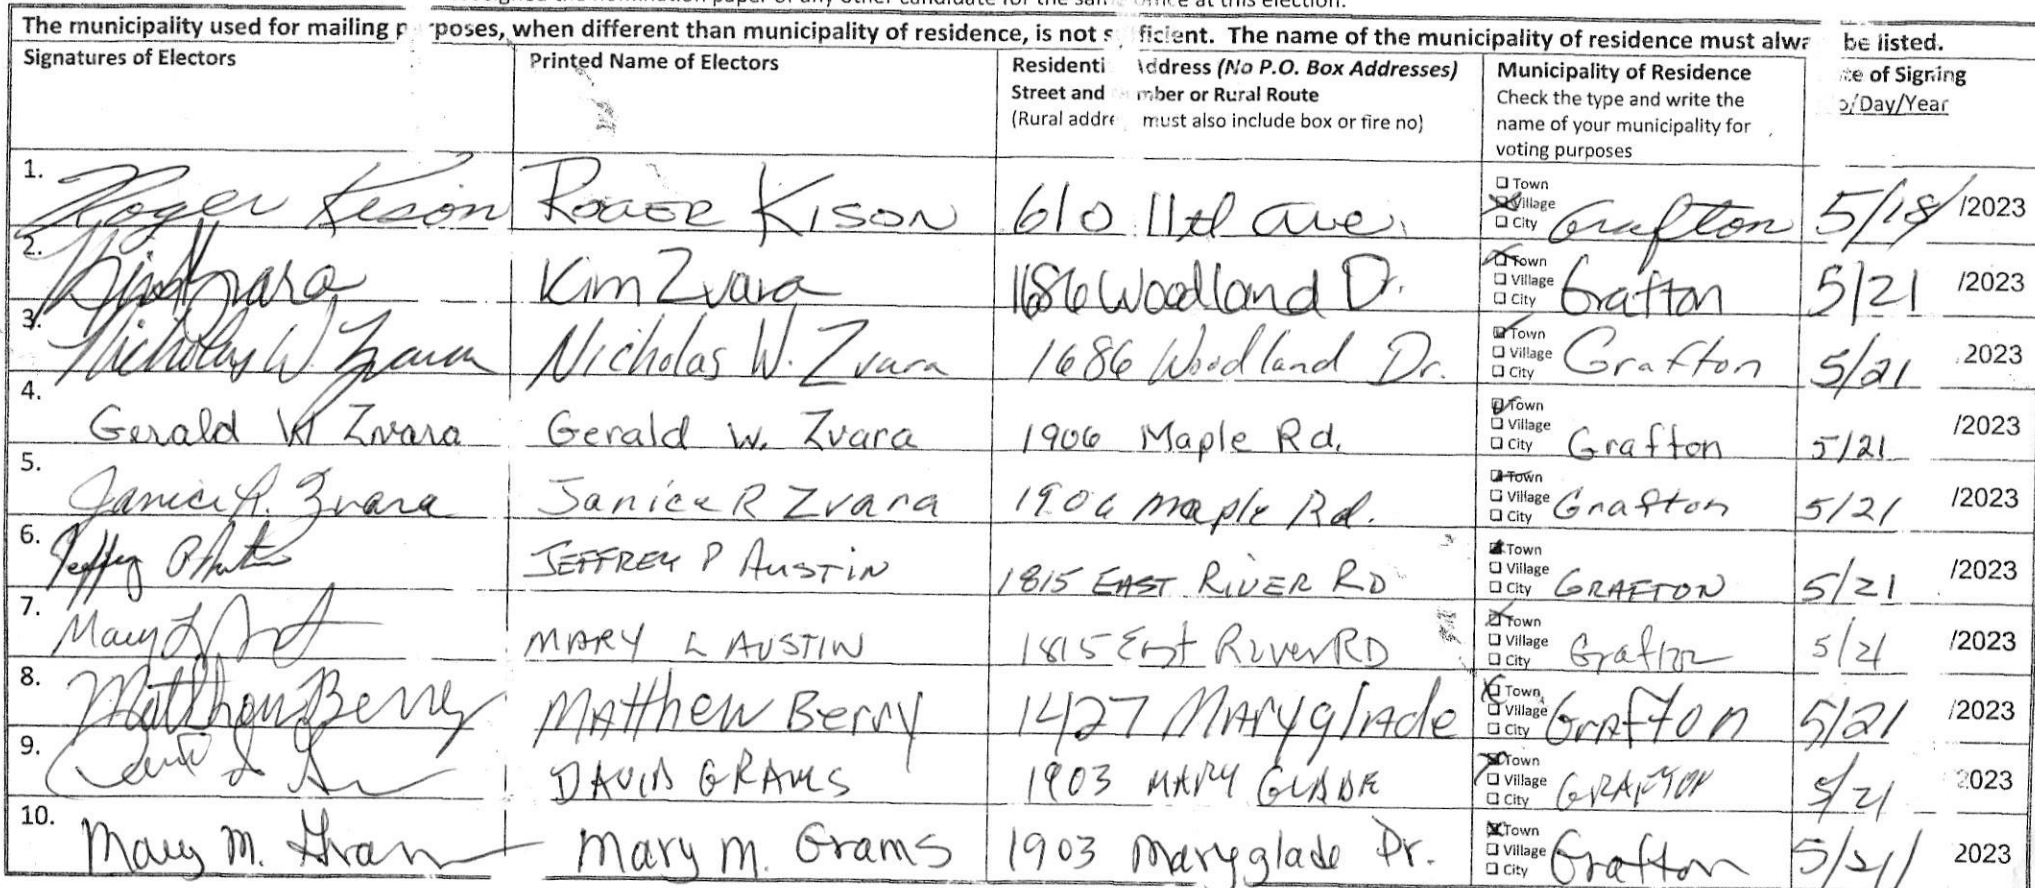 The municipality used for mailing p poses, when different than municipality of residence, is not s ficient. The name of the municipality of residence must alwa be listed.
Signatures of Electors
Printed Name of Electors
Residenti Address (No P.O. Box Addresses)
Street and mber or Rural Route
(Rural addre must also include box or fire no)
Municipality of Residence
Check the type and write the
name of your municipality for
voting purposes
te of Signing
o/Day/Year
1. Roger Kison Roger Kison 610 11th Ave. Town Village City Grafton 5/18/ /2023
2. Kim Zvara Kim Zvara 1686 Woodland Dr. Town Village City Grafton 5/21 /2023
3. Nicholas W. Zvara Nicholas W. Zvara 1686 Woodland Dr. Town Village City Grafton 5/21 2023
4. Gerald W Zvara Gerald W. Zvara 1906 Maple Rd. Town Village City Grafton 5/21 /2023
5. Janice R. Zvara Janice R Zvara 1906 Maple Rd. Town Village City Grafton 5/21 /2023
6. Jeffrey P Austin JEFFREY P AUSTIN 1815 EAST RIVER RD Town Village City GRAFTON 5/21 /2023
7. Mary L MARY L AUSTIN 1815 East River RD Town Village City Grafton 5/21 /2023
8. Matthew Berry Matthew Berry 1427 Maryglade Town Village City Grafton 5/21 /2023
9. DAVID GRAMS 1903 MARY GLADE Town Village City GRAFTON 5/21 2023
10. Mary M. Grams Mary M. Grams 1903 Maryglade Dr. Town Village City Grafton 5/21/ 2023